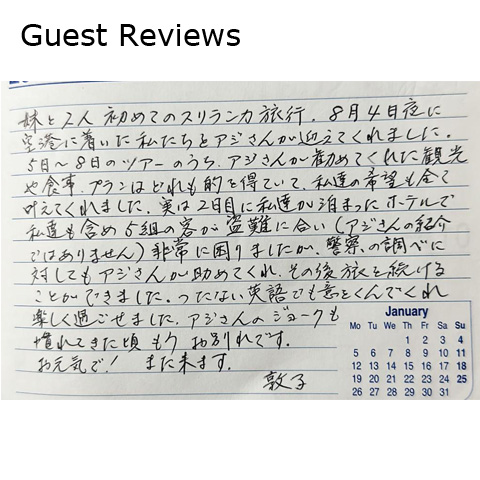 Guest Reviews
妹と2人 初めてのスリランカ旅行。8月4日夜に
空港に着いた私たちをアジさんが迎えてくれました。
5日〜8日のツアーのうち、アジさんが勧めてくれた観光
や食事、プランはどれも的を得ていて、私達の希望も全て
叶えてくれました。実は2日目に私達が泊まったホテルで
私達も含め5組の客が盗難に合い(アジさんの紹介
ではありません)非常に困りましたが、警察の調べに
対してもアジさんが助めてくれ、その後旅を続ける
ことができました。つたない英語でも意をくんでくれ
楽しく過ごせました。アジさんのジョークも
慣れてきた頃もうお別れです。
お元気で! また来ます。
敦子
January
Mo Tu We Th Fr Sa Su
1 2 3 4
5 6 7 8 9 10 11
12 13 14 15 16 17 18
19 20 21 22 23 24 25
26 27 28 29 30 31